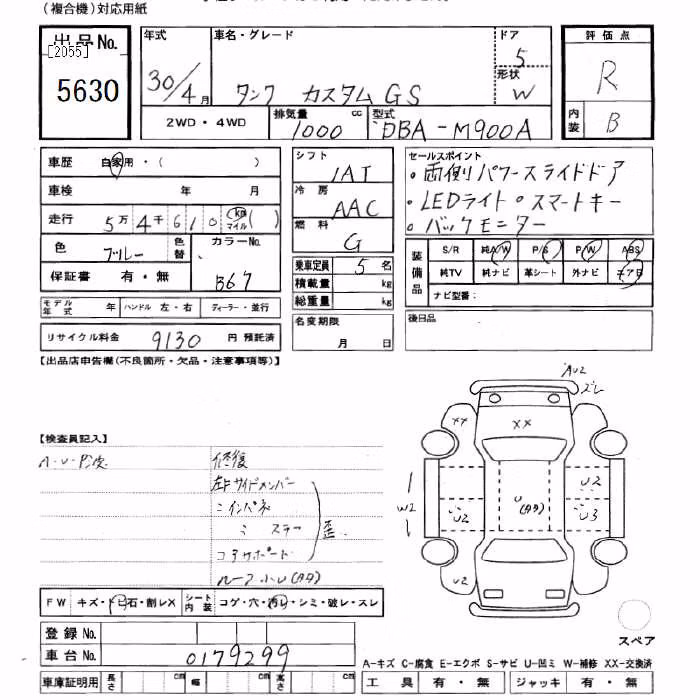 (複合機)対応用紙
出品No.
[2055]
5630
年式
30/4月
車名・グレード
タンク カスタムGS
ドア
5
形状
W
評価点
R
内装
B
2WD・4WD
排気量
1000 cc
型式
DBA-M900A
車歴 自家用・( )
車検 年 月
走行 5万4千610 km マイル ( )
色 ブルー 色替
カラーNo.
B67
保証書 有・無
モデル年式 年 ハンドル 左・右 ディーラー・並行
リサイクル料金 9130 円 預託済
シフト
IAT
冷房
AAC
燃料
G
乗車定員 5 名
積載量 kg
総重量 kg
名変期限
月 日
セールスポイント
・両側パワースライドドア
・LEDライト ・スマートキー
・バックモニター
装備品
S/R 純A/W P/S P/W ABS
純TV 純ナビ 革シート 外ナビ エアB
ナビ型番:
後日品
【出品店申告欄(不良箇所・欠品・注意事項等)】
【検査員記入】
A・U・
修復
左Fサイドメンバー
〃インパネ
〃 ステー
コアサポート
歪
ルーフ小U(タタ)
AU2
ズレ
XX
XX
W2
U2
U
(タタ)
U2
U3
U2
スペア
FW キズ・ト石・割レX シート内装 コゲ・穴・汚レ・シミ・破レ・スレ
登録No.
車台No. 0179299
車庫証明用 長さ cm 幅 cm 高さ cm
A-キズ C-腐食 E-エクボ S-サビ U-凹ミ W-補修 XX-交換済
工具 有・無 ジャッキ 有・無